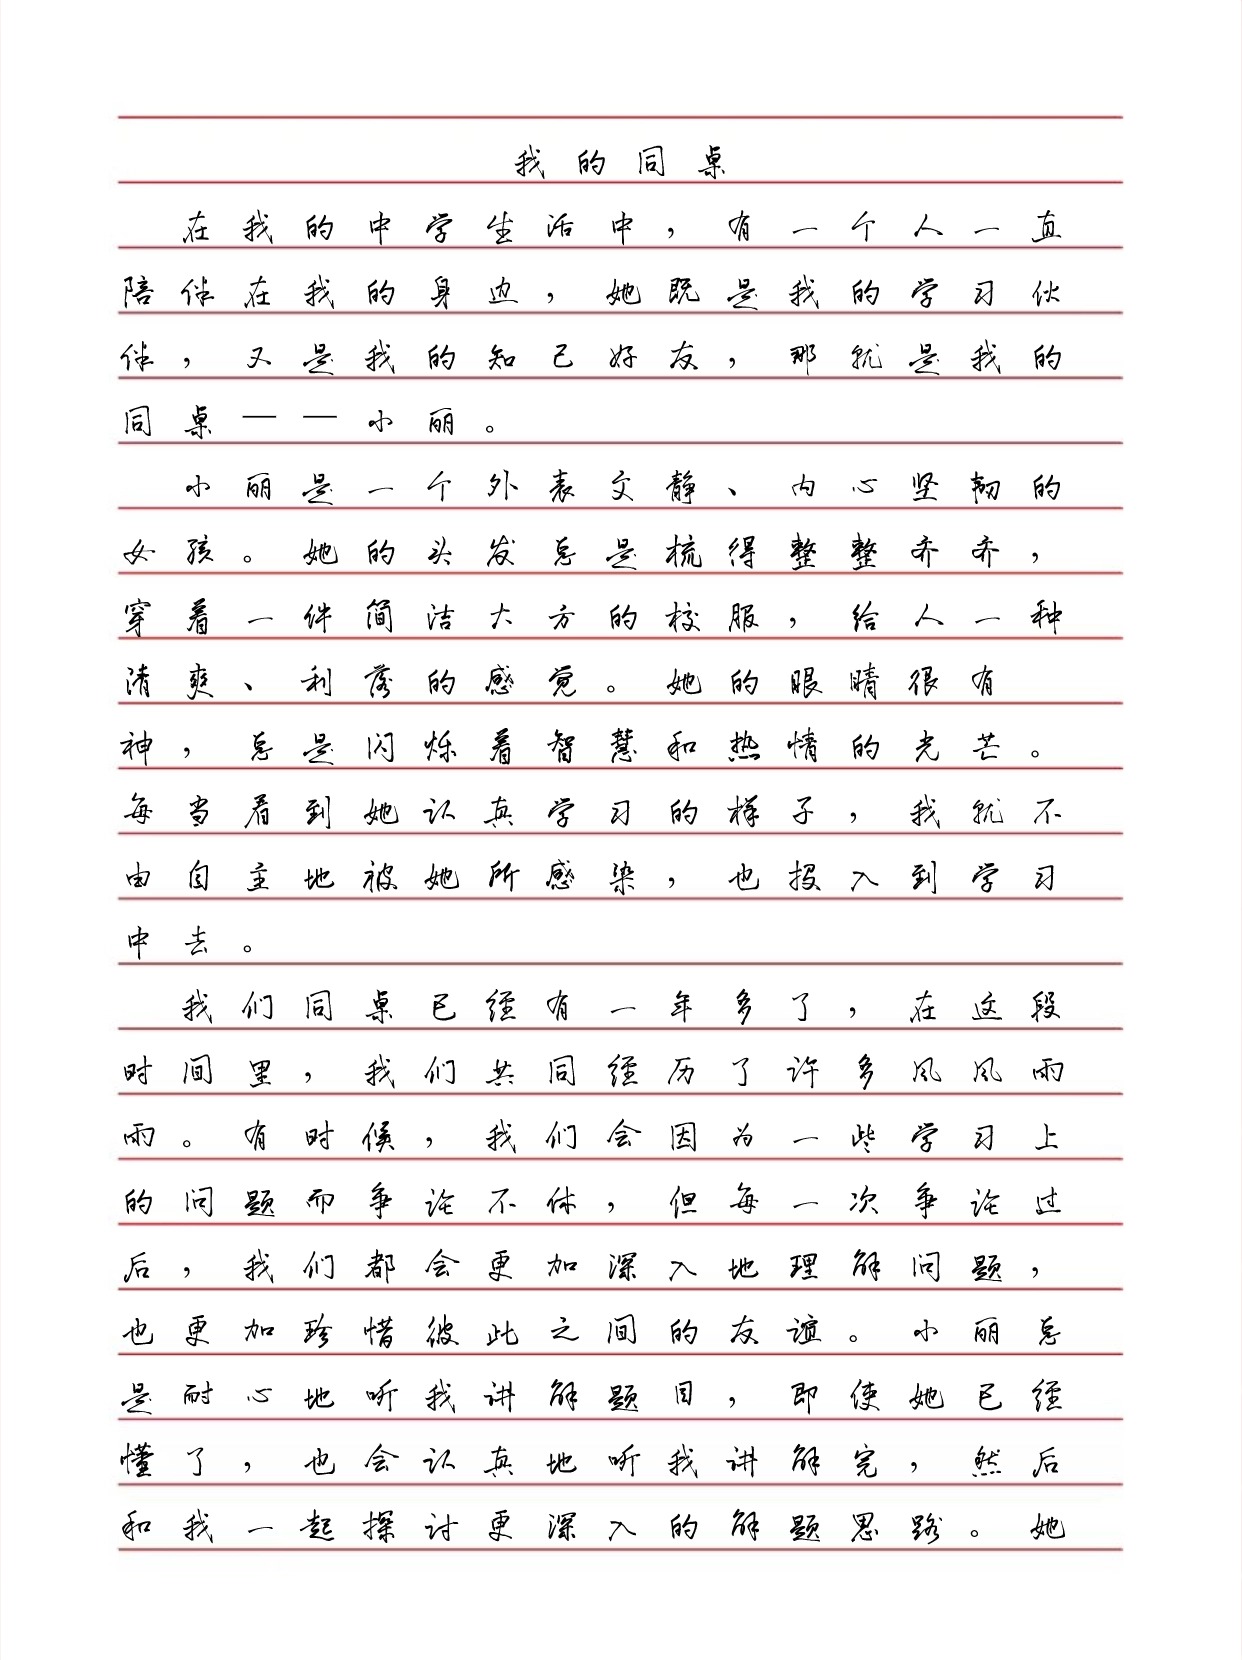 我的同桌
在我的中学生活中，有一个人一直
陪伴在我的身边，她既是我的学习伙
伴，又是我的知己好友，那就是我的
同桌——小丽。
小丽是一个外表文静、内心坚韧的
女孩。她的头发总是梳得整整齐齐，
穿着一件简洁大方的校服，给人一种
清爽、利落的感觉。她的眼睛很有
神，总是闪烁着智慧和热情的光芒。
每当看到她认真学习的样子，我就不
由自主地被她所感染，也投入到学习
中去。
我们同桌已经有一年多了，在这段
时间里，我们共同经历了许多风风雨
雨。有时候，我们会因为一些学习上
的问题而争论不休，但每一次争论过
后，我们都会更加深入地理解问题，
也更加珍惜彼此之间的友谊。小丽总
是耐心地听我讲解题目，即使她已经
懂了，也会认真地听我讲解完，然后
和我一起探讨更深入的解题思路。她